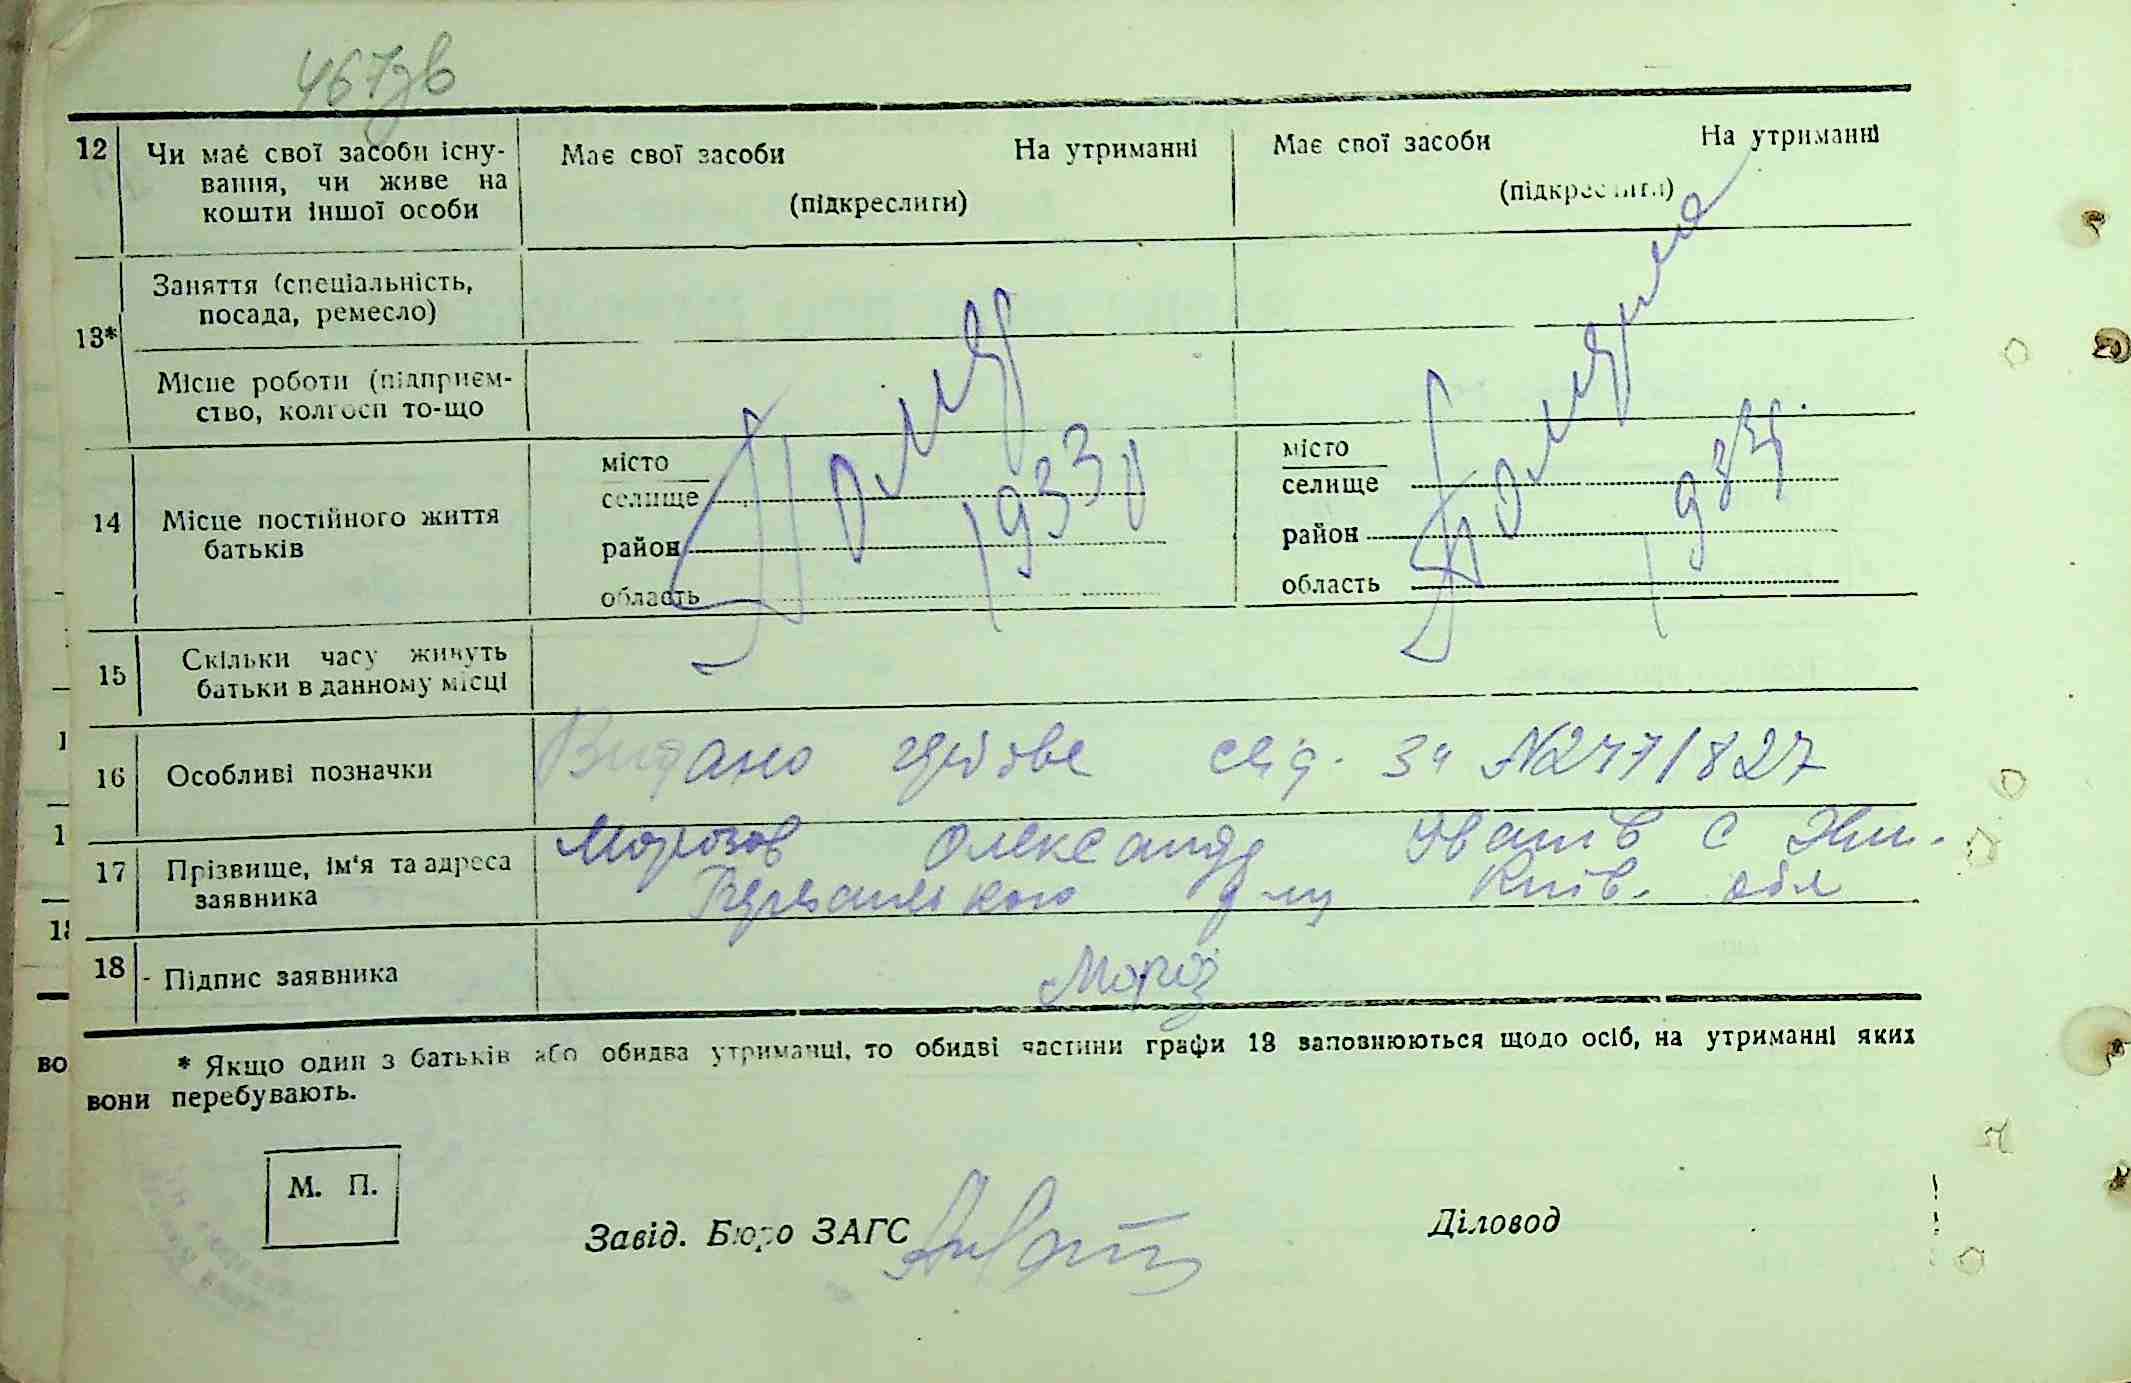 467зв
12 Чи має свої засоби існу-
вання, чи живе на
кошти іншої особи
Має свої засоби На утриманні
(підкреслити)
Має свої засоби На утриманні
(підкреслити)
13* Заняття (спеціальність,
посада, ремесло)
Місце роботи (підприєм-
ство, колгосп то-що
14 Місце постійного життя
батьків
місто
селище
район
область
Помер
1933
місто
селище
район
область
Померла
1933
15 Скільки часу живуть
батьки в данному місці
16 Особливі позначки
Видано свід. за №
17 Прізвище, ім'я та адреса
заявника
Морозов Олександр с
Київ. обл
18 - Підпис заявника
Мороз
* Якщо один з батьків або обидва утриманці, то обидві частини графи 13 заповнюються щодо осіб, на утриманні яких
вони перебувають.
М. П.
Завід. Бюро ЗАГС
Діловод